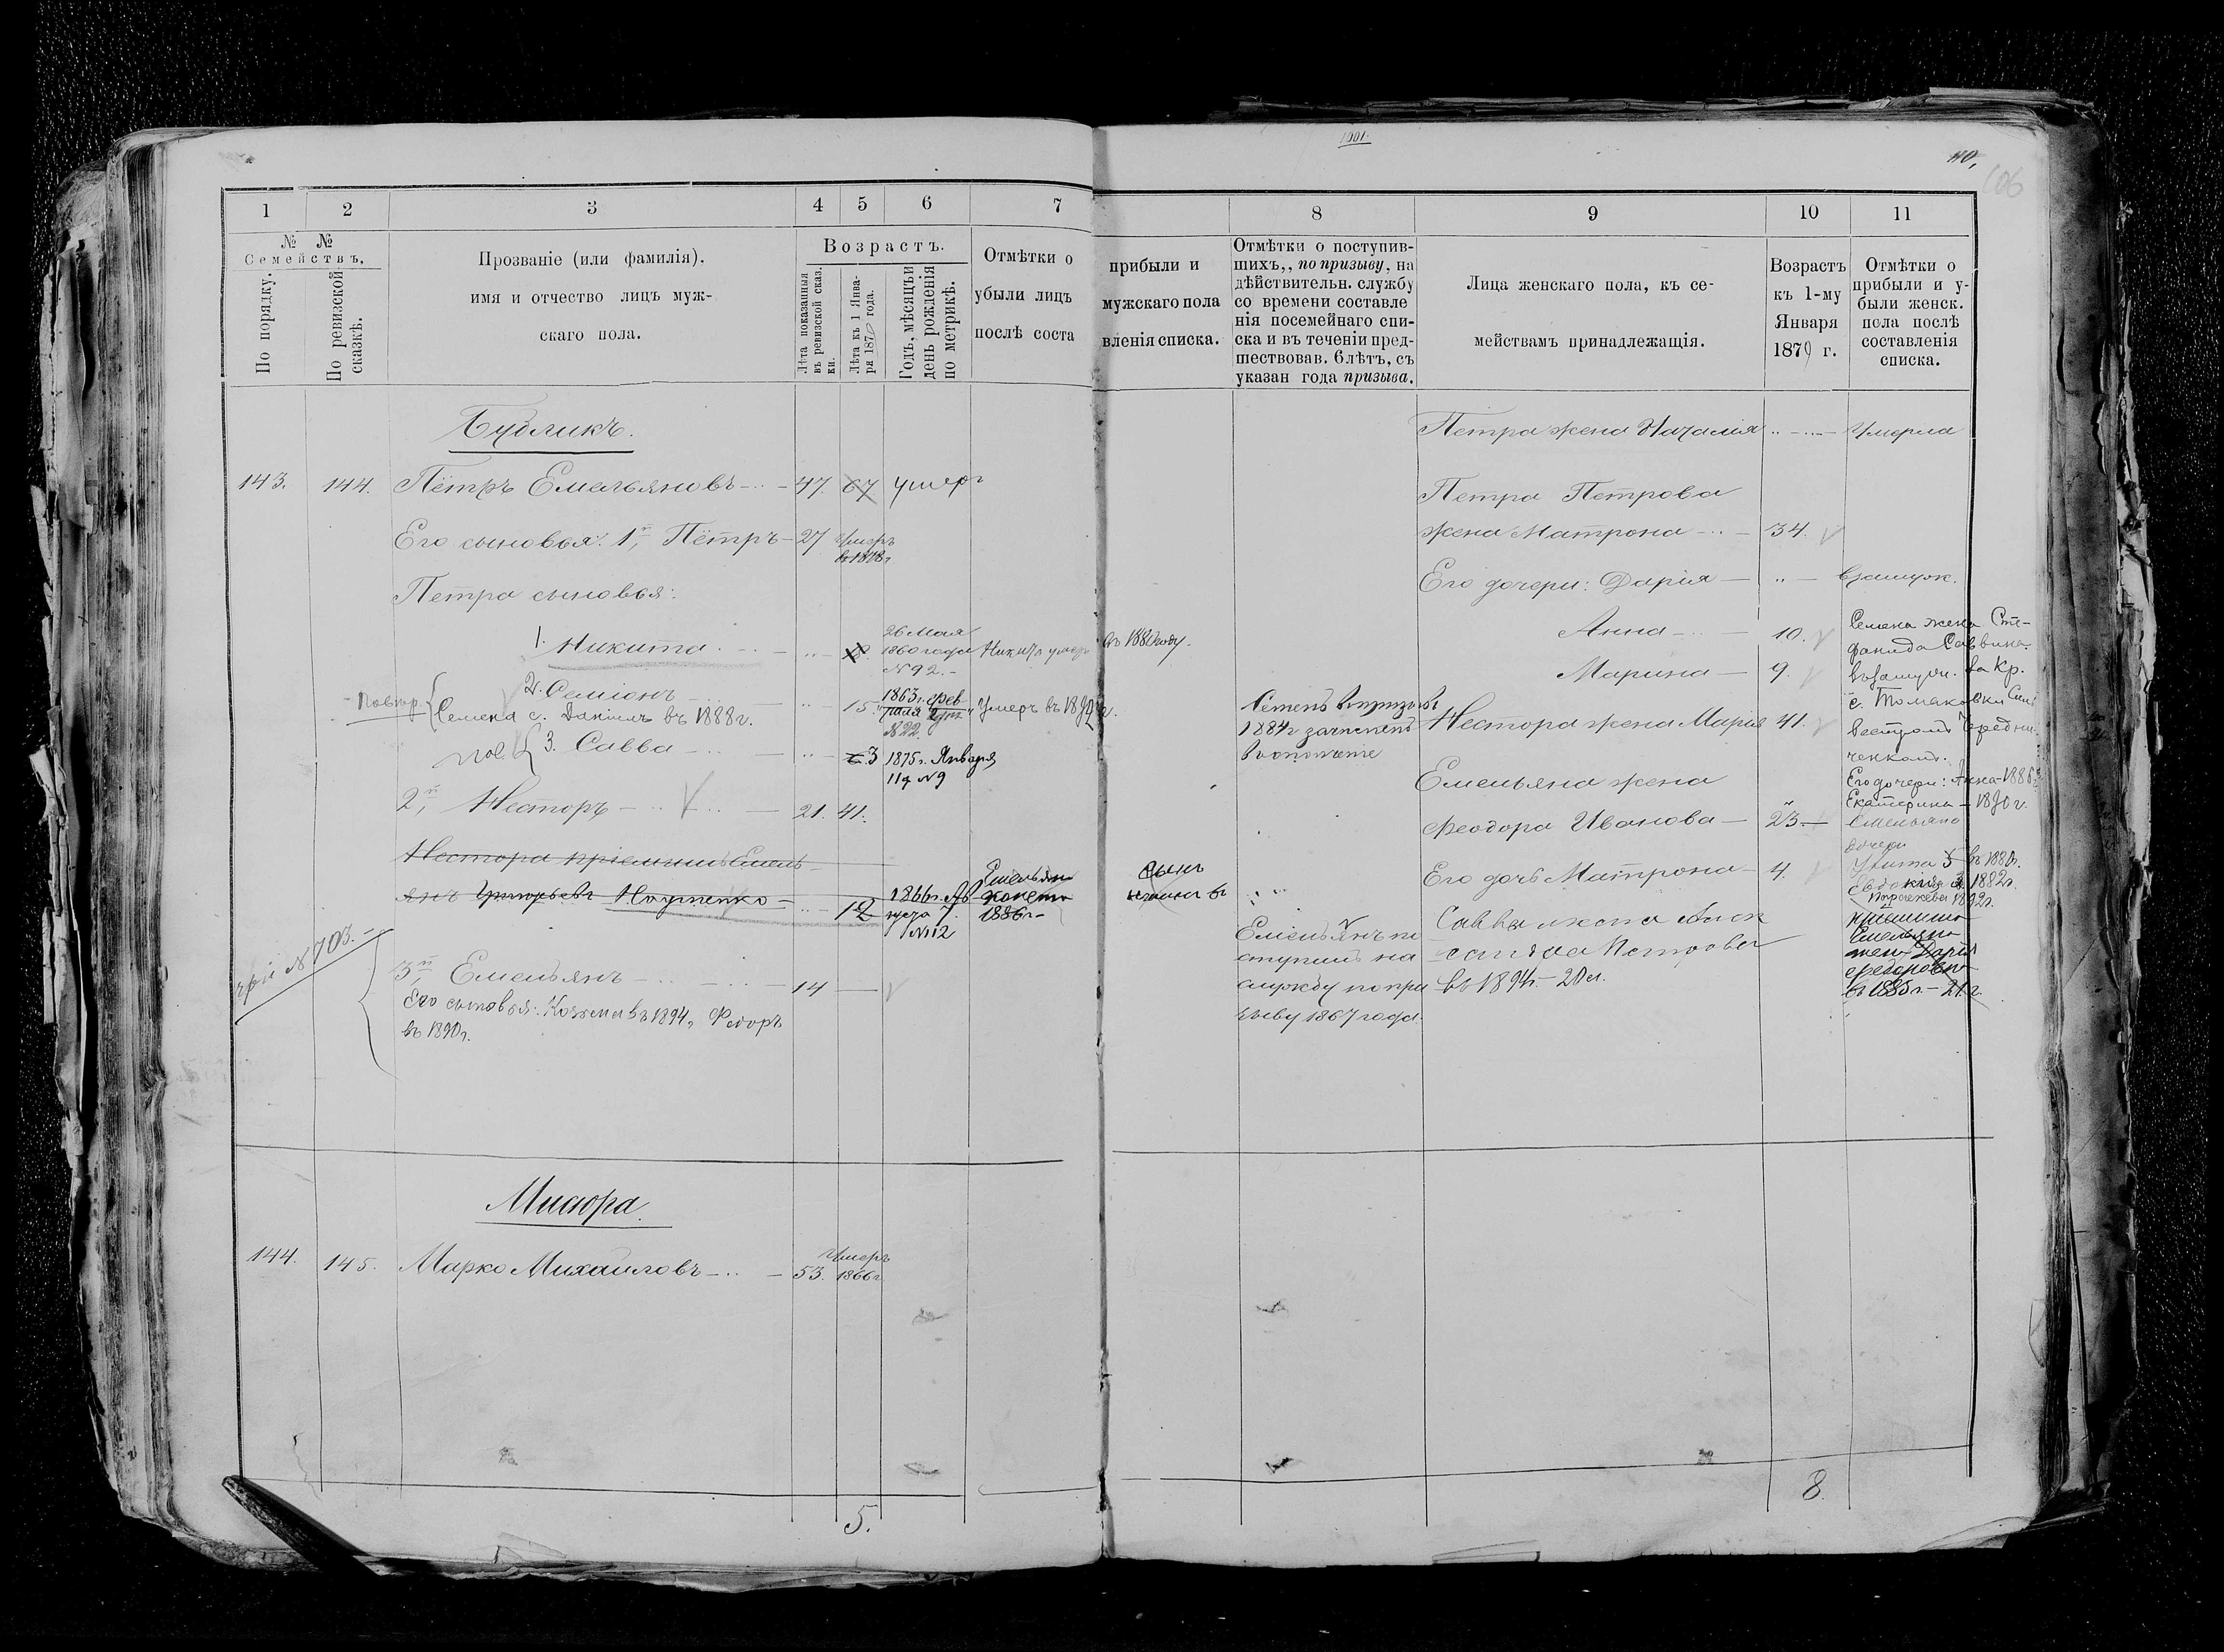 1001.
110,
106
1 2 3 4 5 6 7 8 9 10 11
№ №
Семействъ.
По порядку.
По ревизской сказкѣ.
Прозваніе (или фамилія).
имя и отчество лицъ муж-
скаго пола.
Возрастъ.
Лѣта показанныя
въ ревизской сказ.
ки.
Лѣта къ 1 Янва-
ря 1879 года.
Годъ, мѣсяцъ и
день рожденія
по метрикѣ.
Отмѣтки о
убыли лицъ
послѣ соста
прибыли и
мужскаго пола
вленія списка.
Отмѣтки о поступив-
шихъ,, по призыву, на
дѣйствительн. службу
со времени составле
нія посемейнаго спи-
ска и въ теченіи пред-
шествовав. 6 лѣтъ, съ
указан года призыва.
Лица женскаго пола, къ се-
мействамъ принадлежащія.
Возрастъ
къ 1-му
Января
1879 г.
Отмѣтки о
прибыли и у-
были женск.
пола послѣ
составленія
списка.
Бубликъ.
143. 144. Пётръ Емельяновъ 47. 67 умеръ
Его сыновья: 1й, Пётръ 27 Умеръ
Петра сыновья:
1. Никита
26 Мая
1860 года
№ 92.
Никита умеръ въ 188 году.
2. Семіонъ 15
1863 г. Фев
№ 22.
Умеръ въ
Семена с. Даніилъ въ 1888 г.
3. Савва 3
1875 г. Января
11 д №9
2й, Несторъ 21. 41.
Нестора пріемышъ Емель
янъ Григорьевъ 12
1866 г. Ав
густа 7.
№ 12
Емельянъ
1886 г
сынъ
при № 703.
3й, Емельянъ 14
Его сыновья: Козьма въ 1894, Федоръ
въ 1890 г.
Семенъ
1884 г зачисленъ
въ ополченіе
Емельянъ по
ступилъ на
службу по при
зыву 1867 года.
Петра жена Наталія Умерла
Петра Петрова
жена Матрона 34.
Его дочери: Дарія взамуж.
Анна 10.
Марина 9.
Нестора жена Марія 41.
Емельяна жена
Феодора Иванова 23.
Его дочь Матрона 4.
Саввы жена Алек
сандра Петрова
въ 1894 г. 20 л.
Семена жена Сте-
фанида Саввина.
взамуж. за Кр.
с. Томаковки
Его дочери: Анна 1886 г.
Екатерина
Емельяна
дочери
Улита въ 1880 г.
Евдокія 1882 г.
1892 г.
пріемыша
Емельяна
жена Дарія
Федорова
въ 1885 г. 21 г.
Мисюра.
144. 145. Марко Михаиловъ 53. Умеръ
1866 г
5.
8.